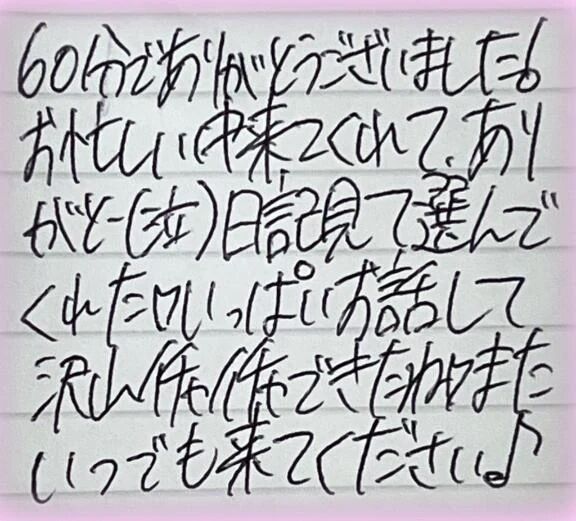 60分でありがとうございました!
お忙しい中来てくれて、あり
がとー(泣)日記見て選んで
くれたりいっぱいお話して
沢山イチャイチャできたねまた
いつでも来てください♪